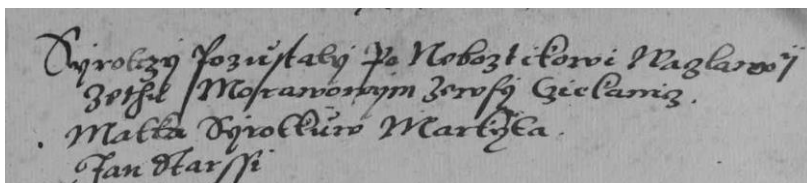 Syrotczy Pozustaly Po Neboztikowi Waglawowi
Zethu Morawowym Zewsy Czielaniz.
Matka Syrotkuw Martha.
Jan starssi